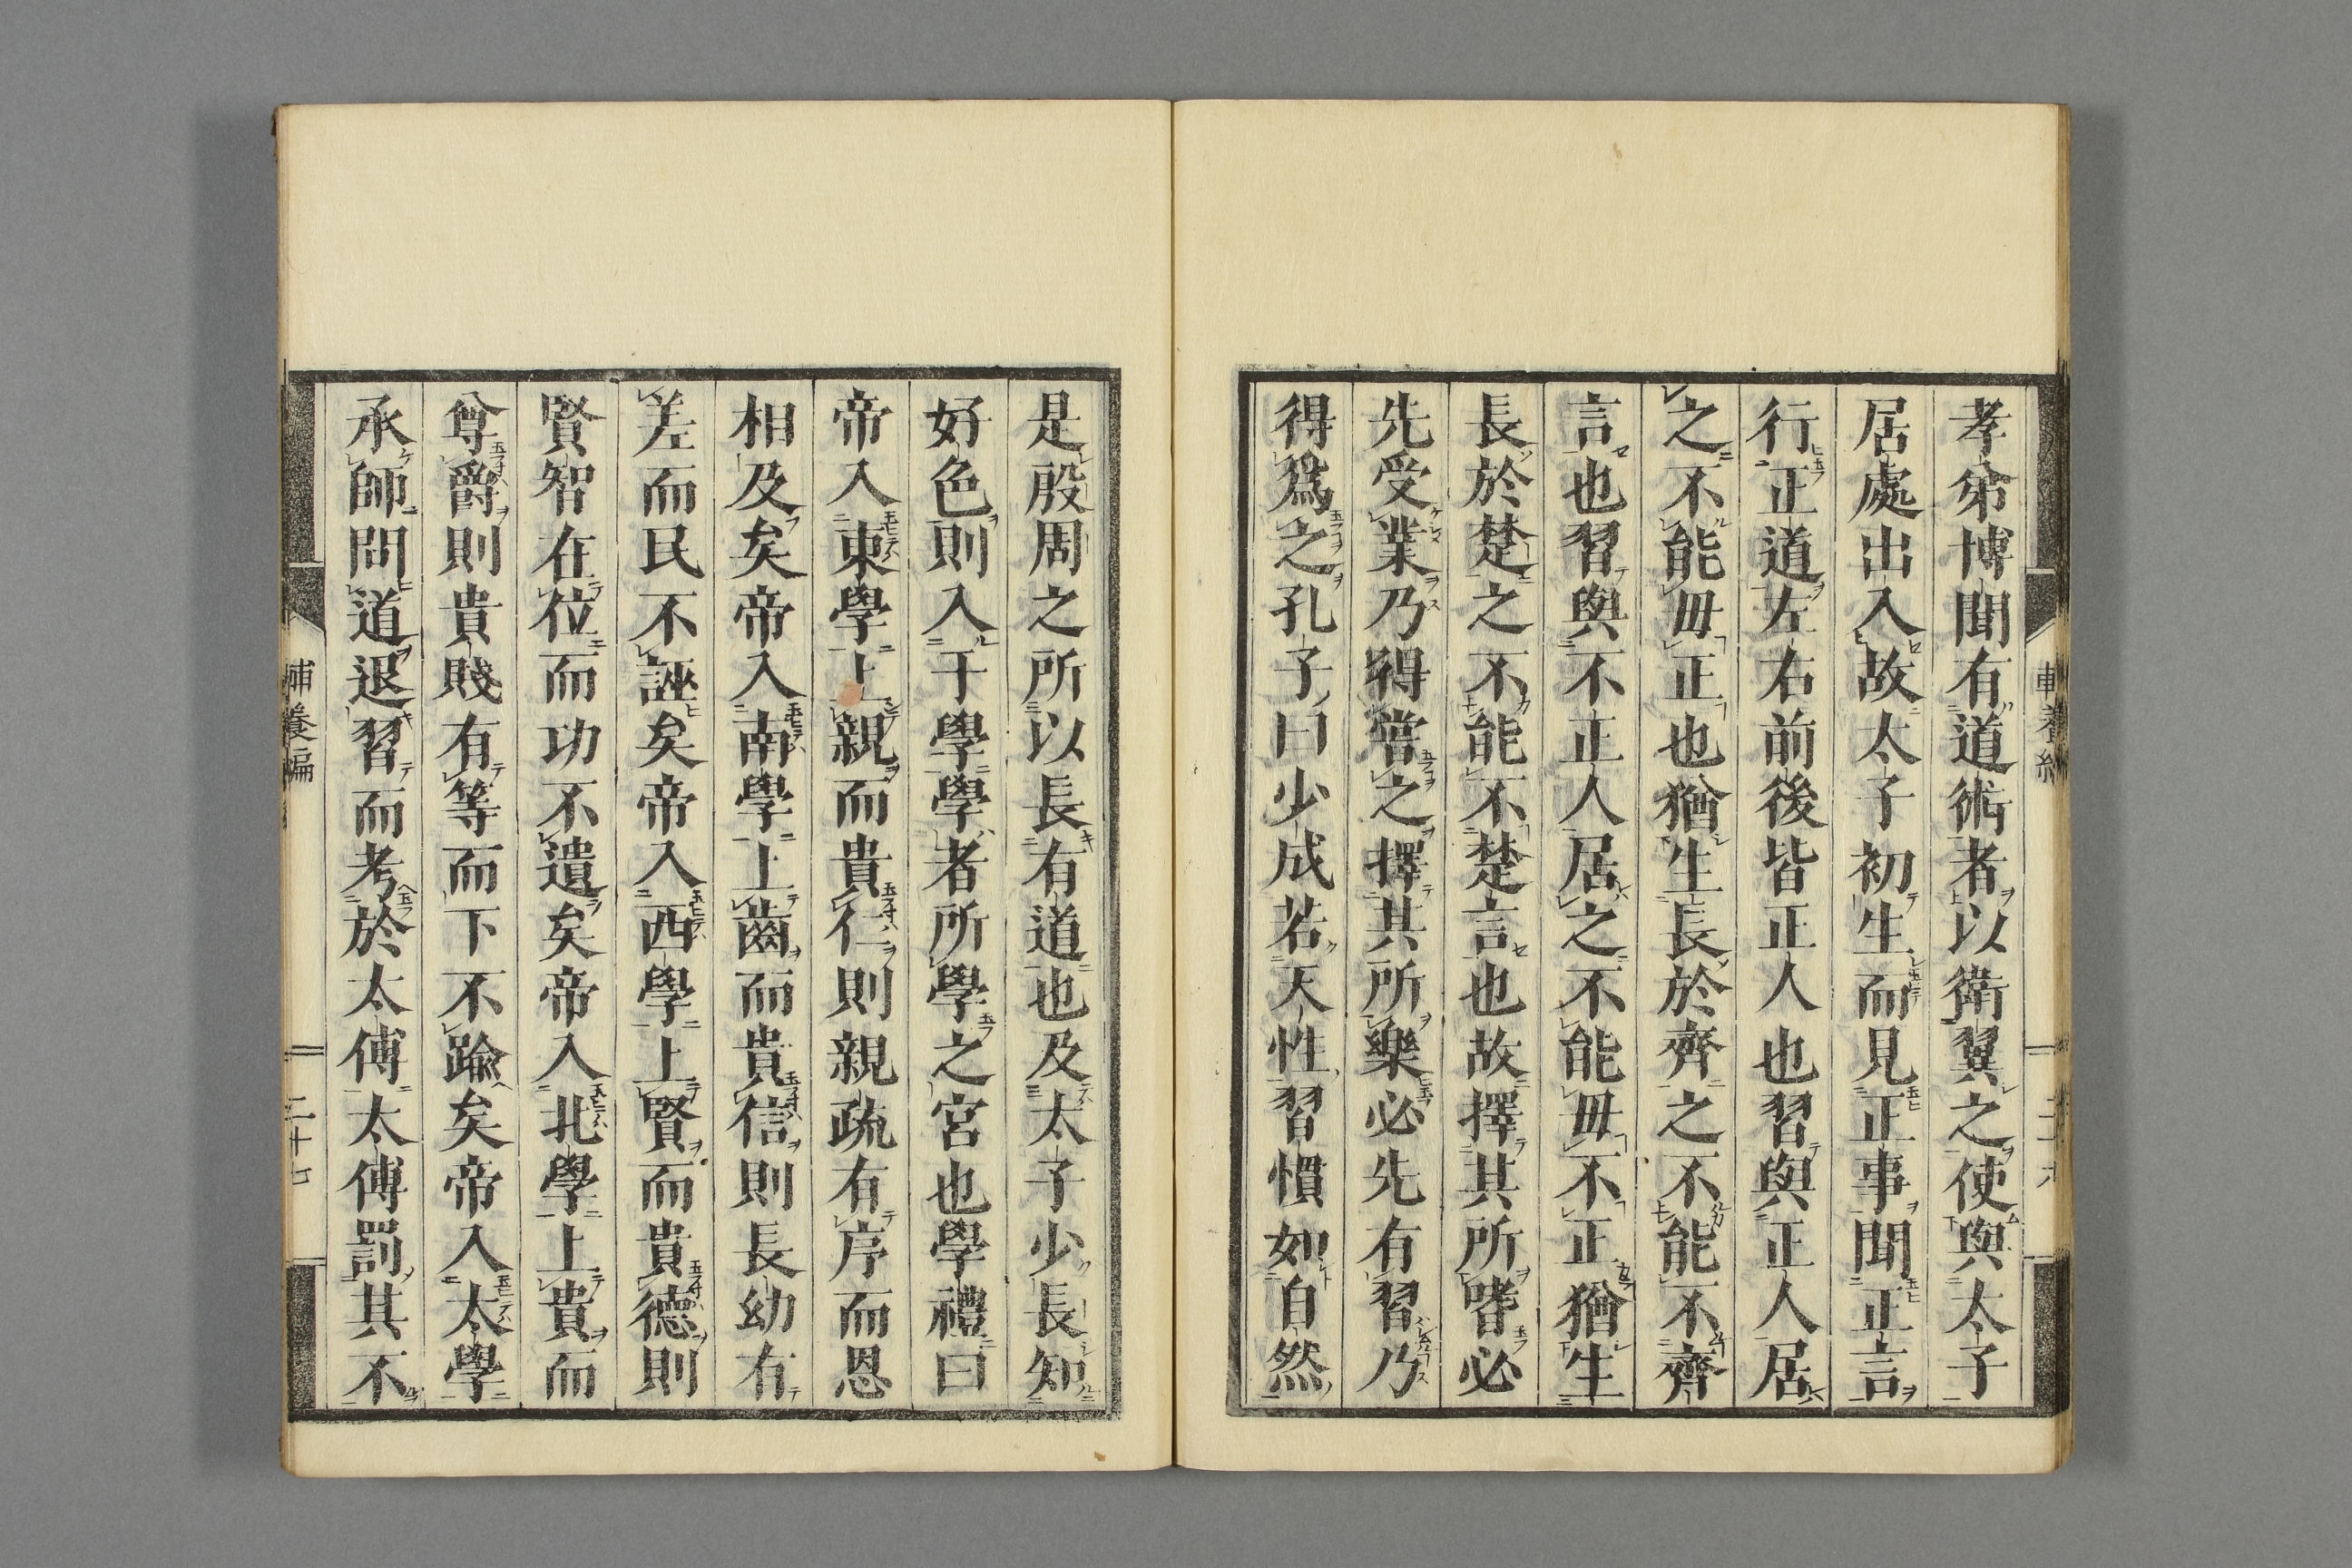 孝弟博聞有道術者以衛翼之使與太子
居處出入故太子初生而見正事聞正言
行正道左右前後皆正人也習與正人居
之不能毋正也猶生長於齊之不能不齊
言也習與不正人居之不能毋不正猶生
長於楚之不能不楚言也故擇其所嗜必
先受業乃得嘗之擇其所樂必先有習乃
得爲之孔子曰少成若天性習慣如自然
是殷周之所以長有道也及太子少長知
好色則入于學學者所學之宮也學禮曰
帝入東學上親而貴仁則親疏有序而恩
相及矣帝入南學上齒而貴信則長幼有
差而民不誣矣帝入西學上賢而貴德則
賢智在位而功不遺矣帝入北學上貴而
尊爵則貴賤有等而下不踰矣帝入太學
承師問道退習而考於太傅太傅罰其不
輔養編
二十七